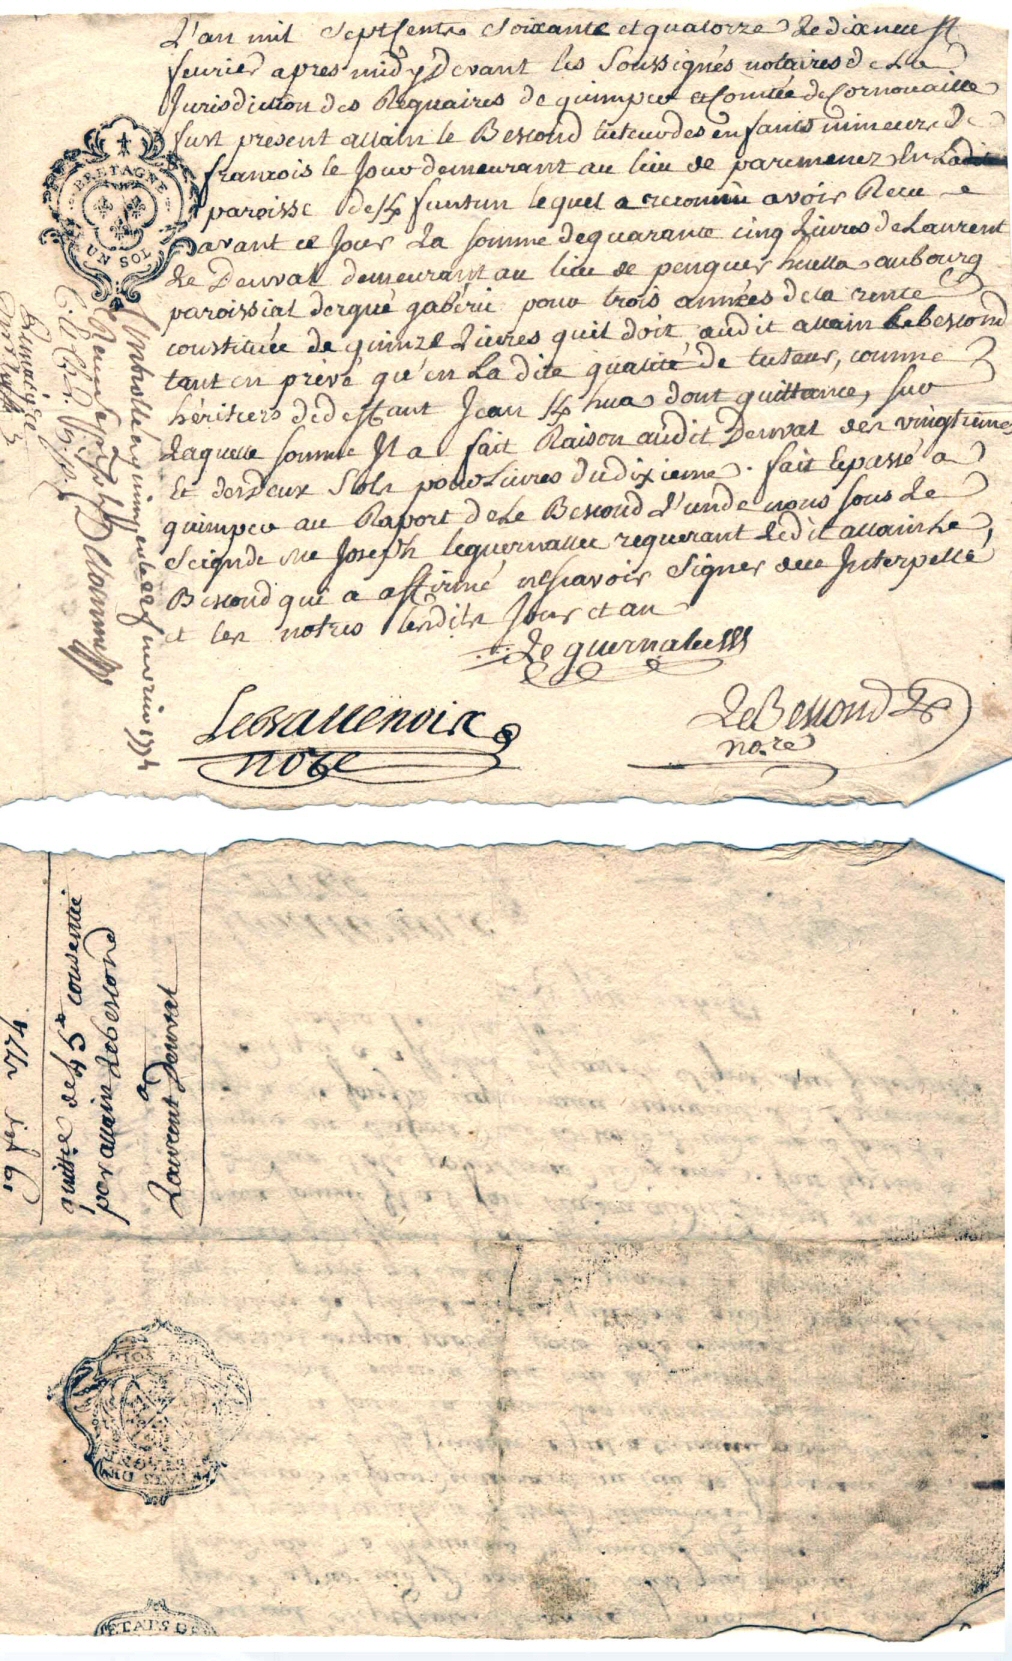 L'an mil Sept Cents Soixante et quatorze Le dix neuf
fevrier apres midy Devant les Soussignés notaires de La
Jurisdiction des Reguaires de quimper et Comtée de Cornouaille
fust present allain le Bescond tuteur des enfants mineurs De
francois le Jour demeurant au lieu de parcmenez En
paroisse de funtun lequel a reconnu avoir Recu
avant ce Jour La somme de quarante cinq Livres de Laurent
Le Deuval demeurant au lieu de penquer huella au bourg
paroissial dergué gabéric pour trois années de la rente
constituée de quinze Livres quil doit audit allain Lebescond
tant en privé qu'en La dite qualité de tuteur, comme
héritiers de deffunt Jean hua dont quittance, sur
Laquelle somme Il a fait Raison audit Deuval des vingtiemes
Et des Deux Sols pour Livres du dixieme. fait Et passé a
quimper au Raport de Le Bescond L'un de nous sous Le
Seign de Me Joseph Leguernallec requerant Ledit allain Le
Bescond qui a affirmé ne scavoir Signer de ce Interpellé
et les notres Lesdits Jour et an
Le guernalec
Le Bescond
nore
nore
BRETAGNE
UN SOL
fevrier 1774
fer 1774
quittce de 45# consentie
par allain Lebescond
a
Laurent Deuval
UN SOL
ETATS DE